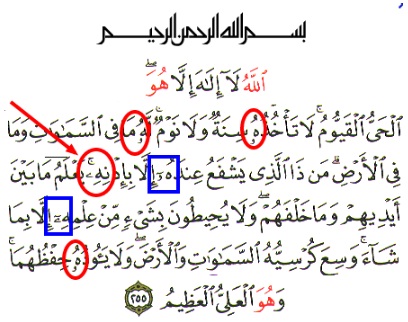 بسم الله الرحمن الرحيم
ٱللَّهُ لَآ إِلَـٰهَ إِلَّا هُوَ
ٱلْحَىُّ ٱلْقَيُّومُ ۚ لَا تَأْخُذُهُۥ سِنَةٌ وَلَا نَوْمٌ ۚ لَّهُۥ مَا فِى ٱلسَّمَـٰوَٰتِ وَمَا
فِى ٱلْأَرْضِ ۗ مَن ذَا ٱلَّذِى يَشْفَعُ عِندَهُۥٓ إِلَّا بِإِذْنِهِۦ ۚ يَعْلَمُ مَا بَيْنَ
أَيْدِيهِمْ وَمَا خَلْفَهُمْ ۖ وَلَا يُحِيطُونَ بِشَىْءٍ مِّنْ عِلْمِهِۦٓ إِلَّا بِمَا
شَآءَ ۚ وَسِعَ كُرْسِيُّهُ ٱلسَّمَـٰوَٰتِ وَٱلْأَرْضَ ۖ وَلَا يَـُٔودُهُۥ حِفْظُهُمَا ۚ
وَهُوَ ٱلْعَلِىُّ ٱلْعَظِيمُ ٢٥٥